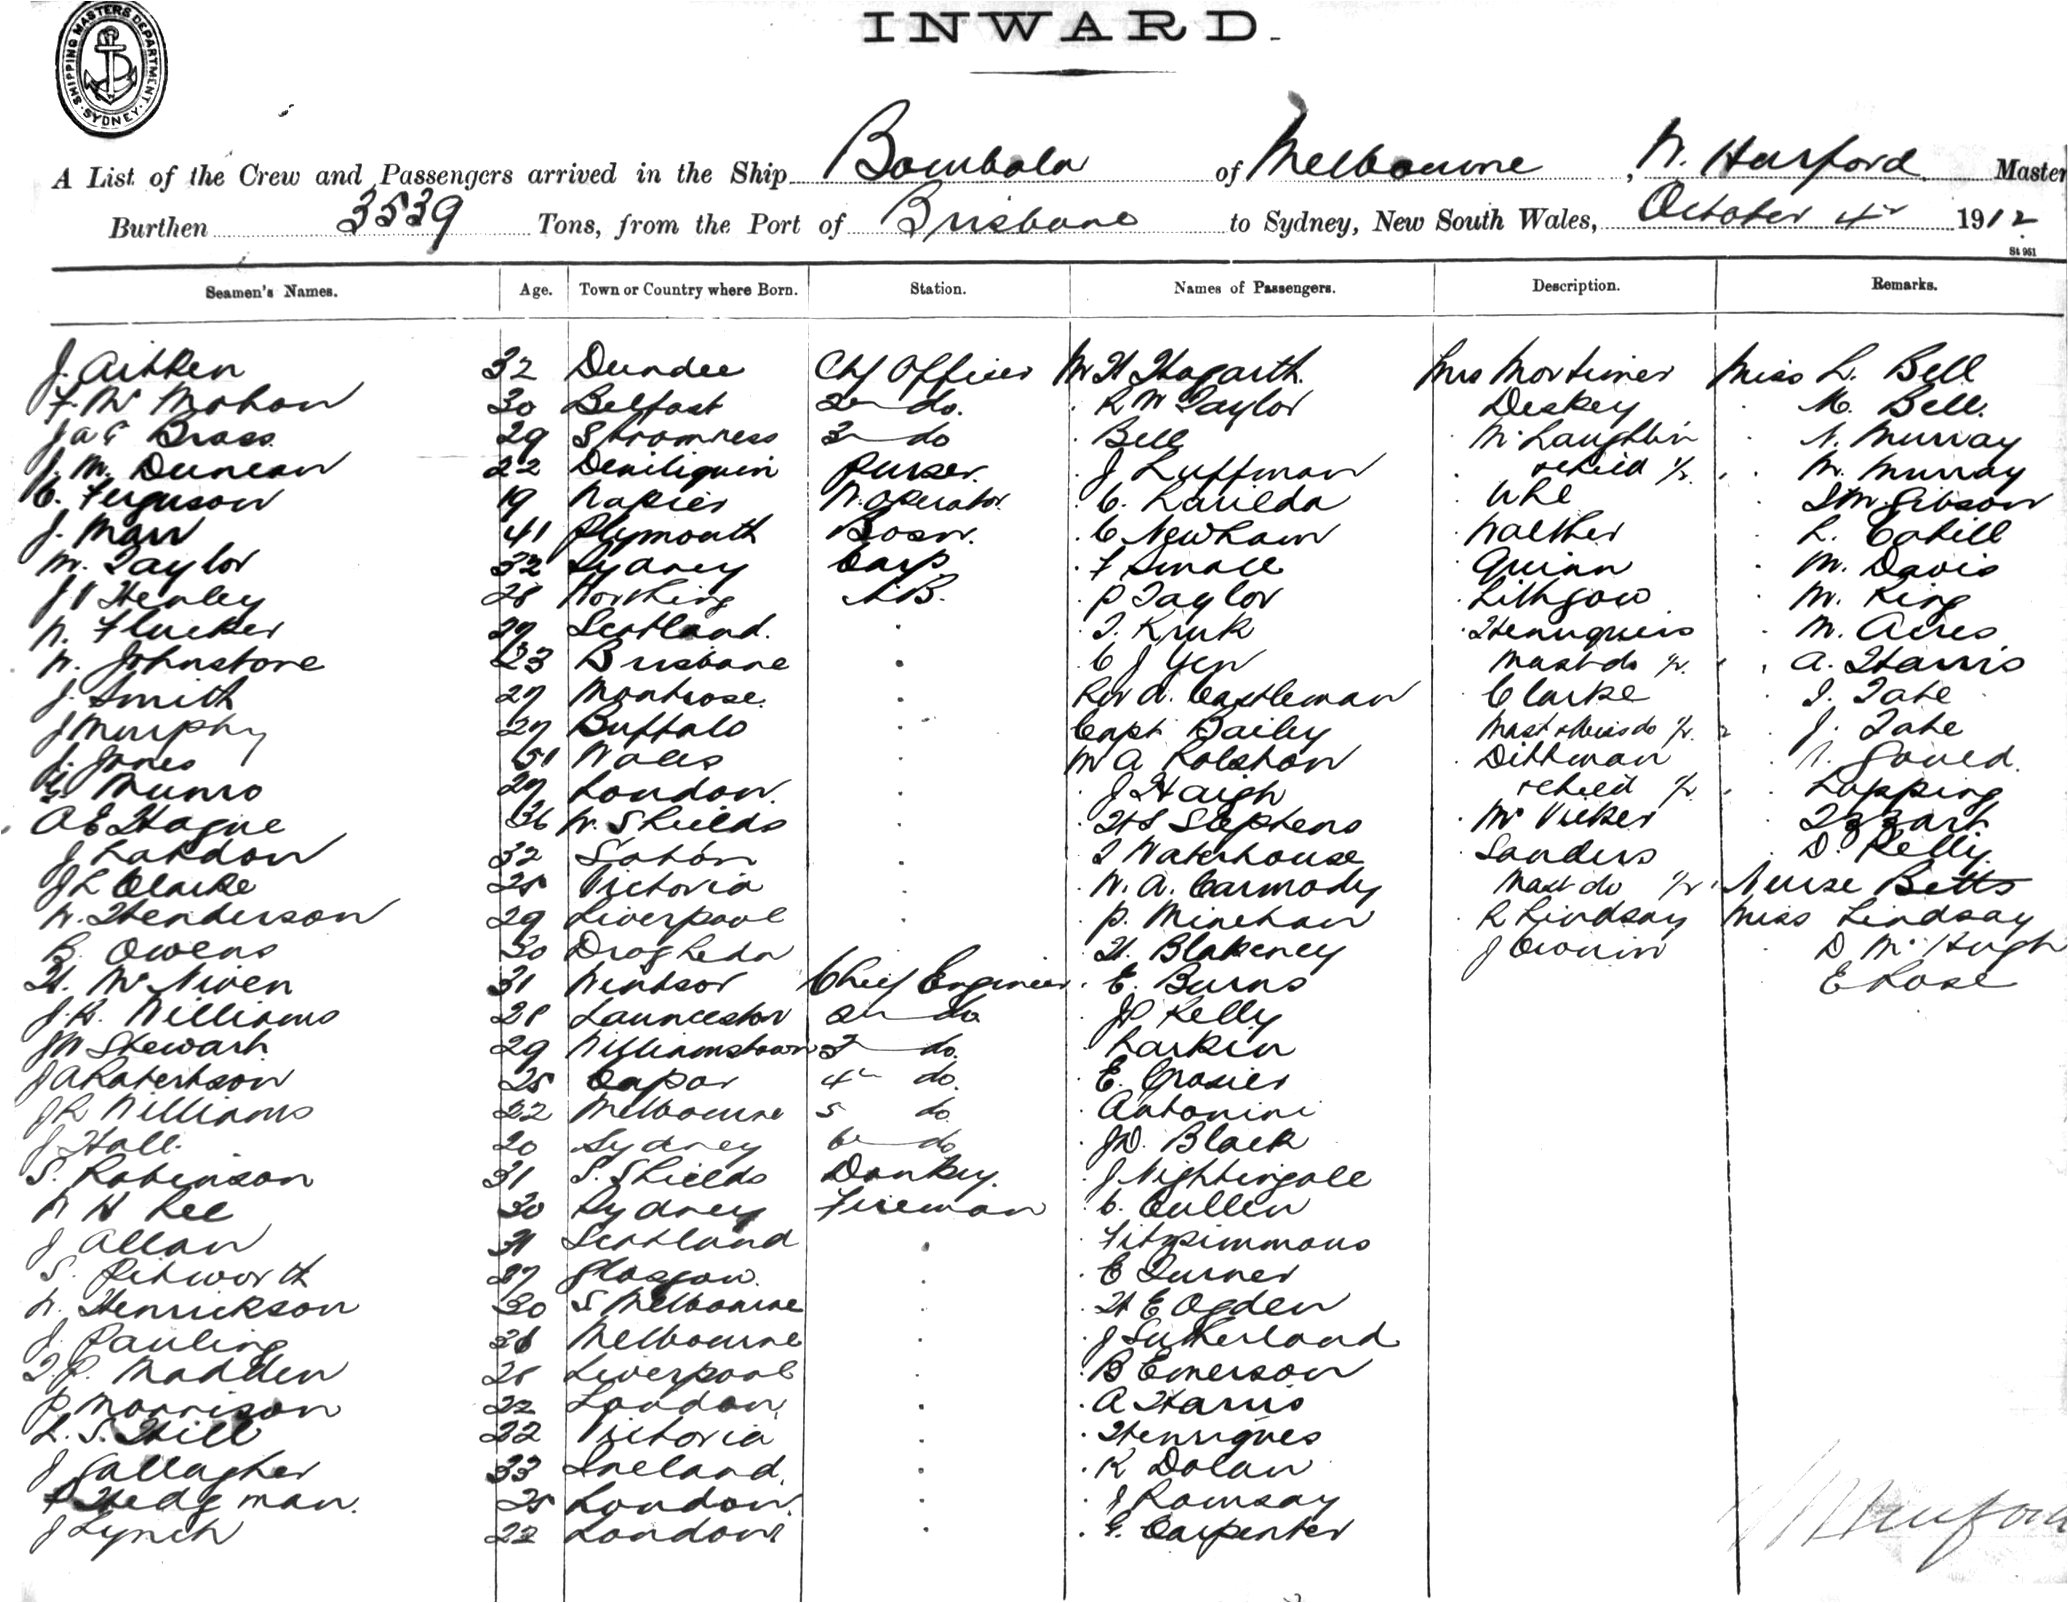 SHIPPING MASTERS DEPARTMENT. SYDNEY.
INWARD.
A List of the Crew and Passengers arrived in the Ship Bombala of Melbourne, W. Hurford, Master
Burthen 3539 Tons, from the Port of Brisbane to Sydney, New South Wales, October 4th 1912
St 961
Seamen's Names. Age. Town or Country where Born. Station. Names of Passengers. Description. Remarks.
J. Aitken 32 Dundee Chf Officer Mr H Hogarth. Mrs Mortimer Miss L. Bell
F. Mc Mahon 30 Belfast 2nd do. R W Taylor Deskey M. Bell.
Jas Brass 29 Stromness 3rd do Bell McLaughlin N. Murray
J. M. Duncan 22 Deniliquin Purser. J Luffman M. Murray
C. Ferguson 19 Napier W. Operator. C. Uhl I M Gibson
J. Marr 41 Plymouth Bosn. C Newham Walther L. Cahill
W. Taylor 32 Sydney Carp F Small Quinn M. Davis
J V Henley 28 Worthing A.B. P Taylor Lithgow M. King
W. Flucker 29 Scotland. T. Kruk M. Acres
W. Johnstone 23 Brisbane C J Yen Mast do A. Harris
J. Smith 27 Montrose. Rev A. Castleman Clarke I. Tate
J Murphy 27 Buffalo Capt Bailey Mast & Miss do J. Tate
Jones 51 Wales Mr A Ralston Dittman Gould.
Munro 27 London. J Haigh Lapping
A E Hague 36 N. Shields H S Stephens McVicker Izzart
J Landon 32 T Waterhouse Sanders D. Kelly
J L Clarke 25 Victoria W. A. Carmody Mast do Nurse Betts
W. Henderson 29 Liverpool P. Minehan R Lindsay Miss Lindsay
B. Owens 30 Drogheda H. Blakeney J Cronin D Mc Hugh
H. McNiven 31 Windsor Chief Engineer E. Burns E Rose
J. R. Williams 28 Launceston 2nd do J P Kelly
J W Stewart 29 Williamstown 3 do. Larkin
J A Robertson 25 4th do. E. Crosier
J R Williams 22 Melbourne 5 do Antonini
J Hall. 20 Sydney 6 do J D. Black
S. Robinson 31 S. Shields Donkey. J Nightingale
W H Lee 30 Sydney Fireman C. Cullen
J Allan 31 Scotland Fitzsimmons
S. Pitworth 27 Glasgow. E Turner
W. Henrickson 30 S Melbourne H E Ogden
J. Pauling 26 Melbourne J Sutherland
T. P. Madden 28 Liverpool B Emerson
P Morrison 22 London. A Harris
L. S. Hill 22 Victoria Henriques
J Gallagher 33 Ireland. K Dolan
F Hedgman. 25 London. J Ramsay
J Lynch 22 London G. Carpenter
W Hurford